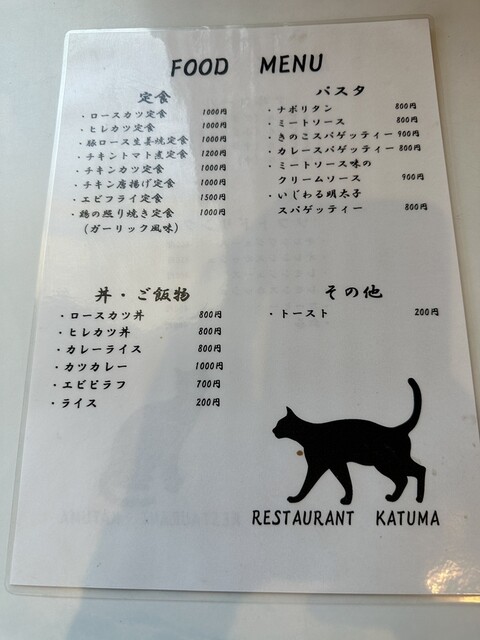 FOOD MENU
定食
・ロースカツ定食 1000円
・ヒレカツ定食 1000円
・豚ロース生姜焼定食 1000円
・チキントマト煮定食 1200円
・チキンカツ定食 1000円
・チキン唐揚げ定食 1000円
・エビフライ定食 1500円
・鶏の照り焼き定食 1000円
(ガーリック風味)
パスタ
・ナポリタン 800円
・ミートソース 800円
・きのこスパゲッティー 900円
・カレースパゲッティー 800円
・ミートソース味の
クリームソース 900円
・いじわる明太子
スパゲッティー 800円
丼・ご飯物
・ロースカツ丼 800円
・ヒレカツ丼 800円
・カレーライス 800円
・カツカレー 1000円
・エビピラフ 700円
・ライス 200円
その他
・トースト 200円
RESTAURANT KATUMA